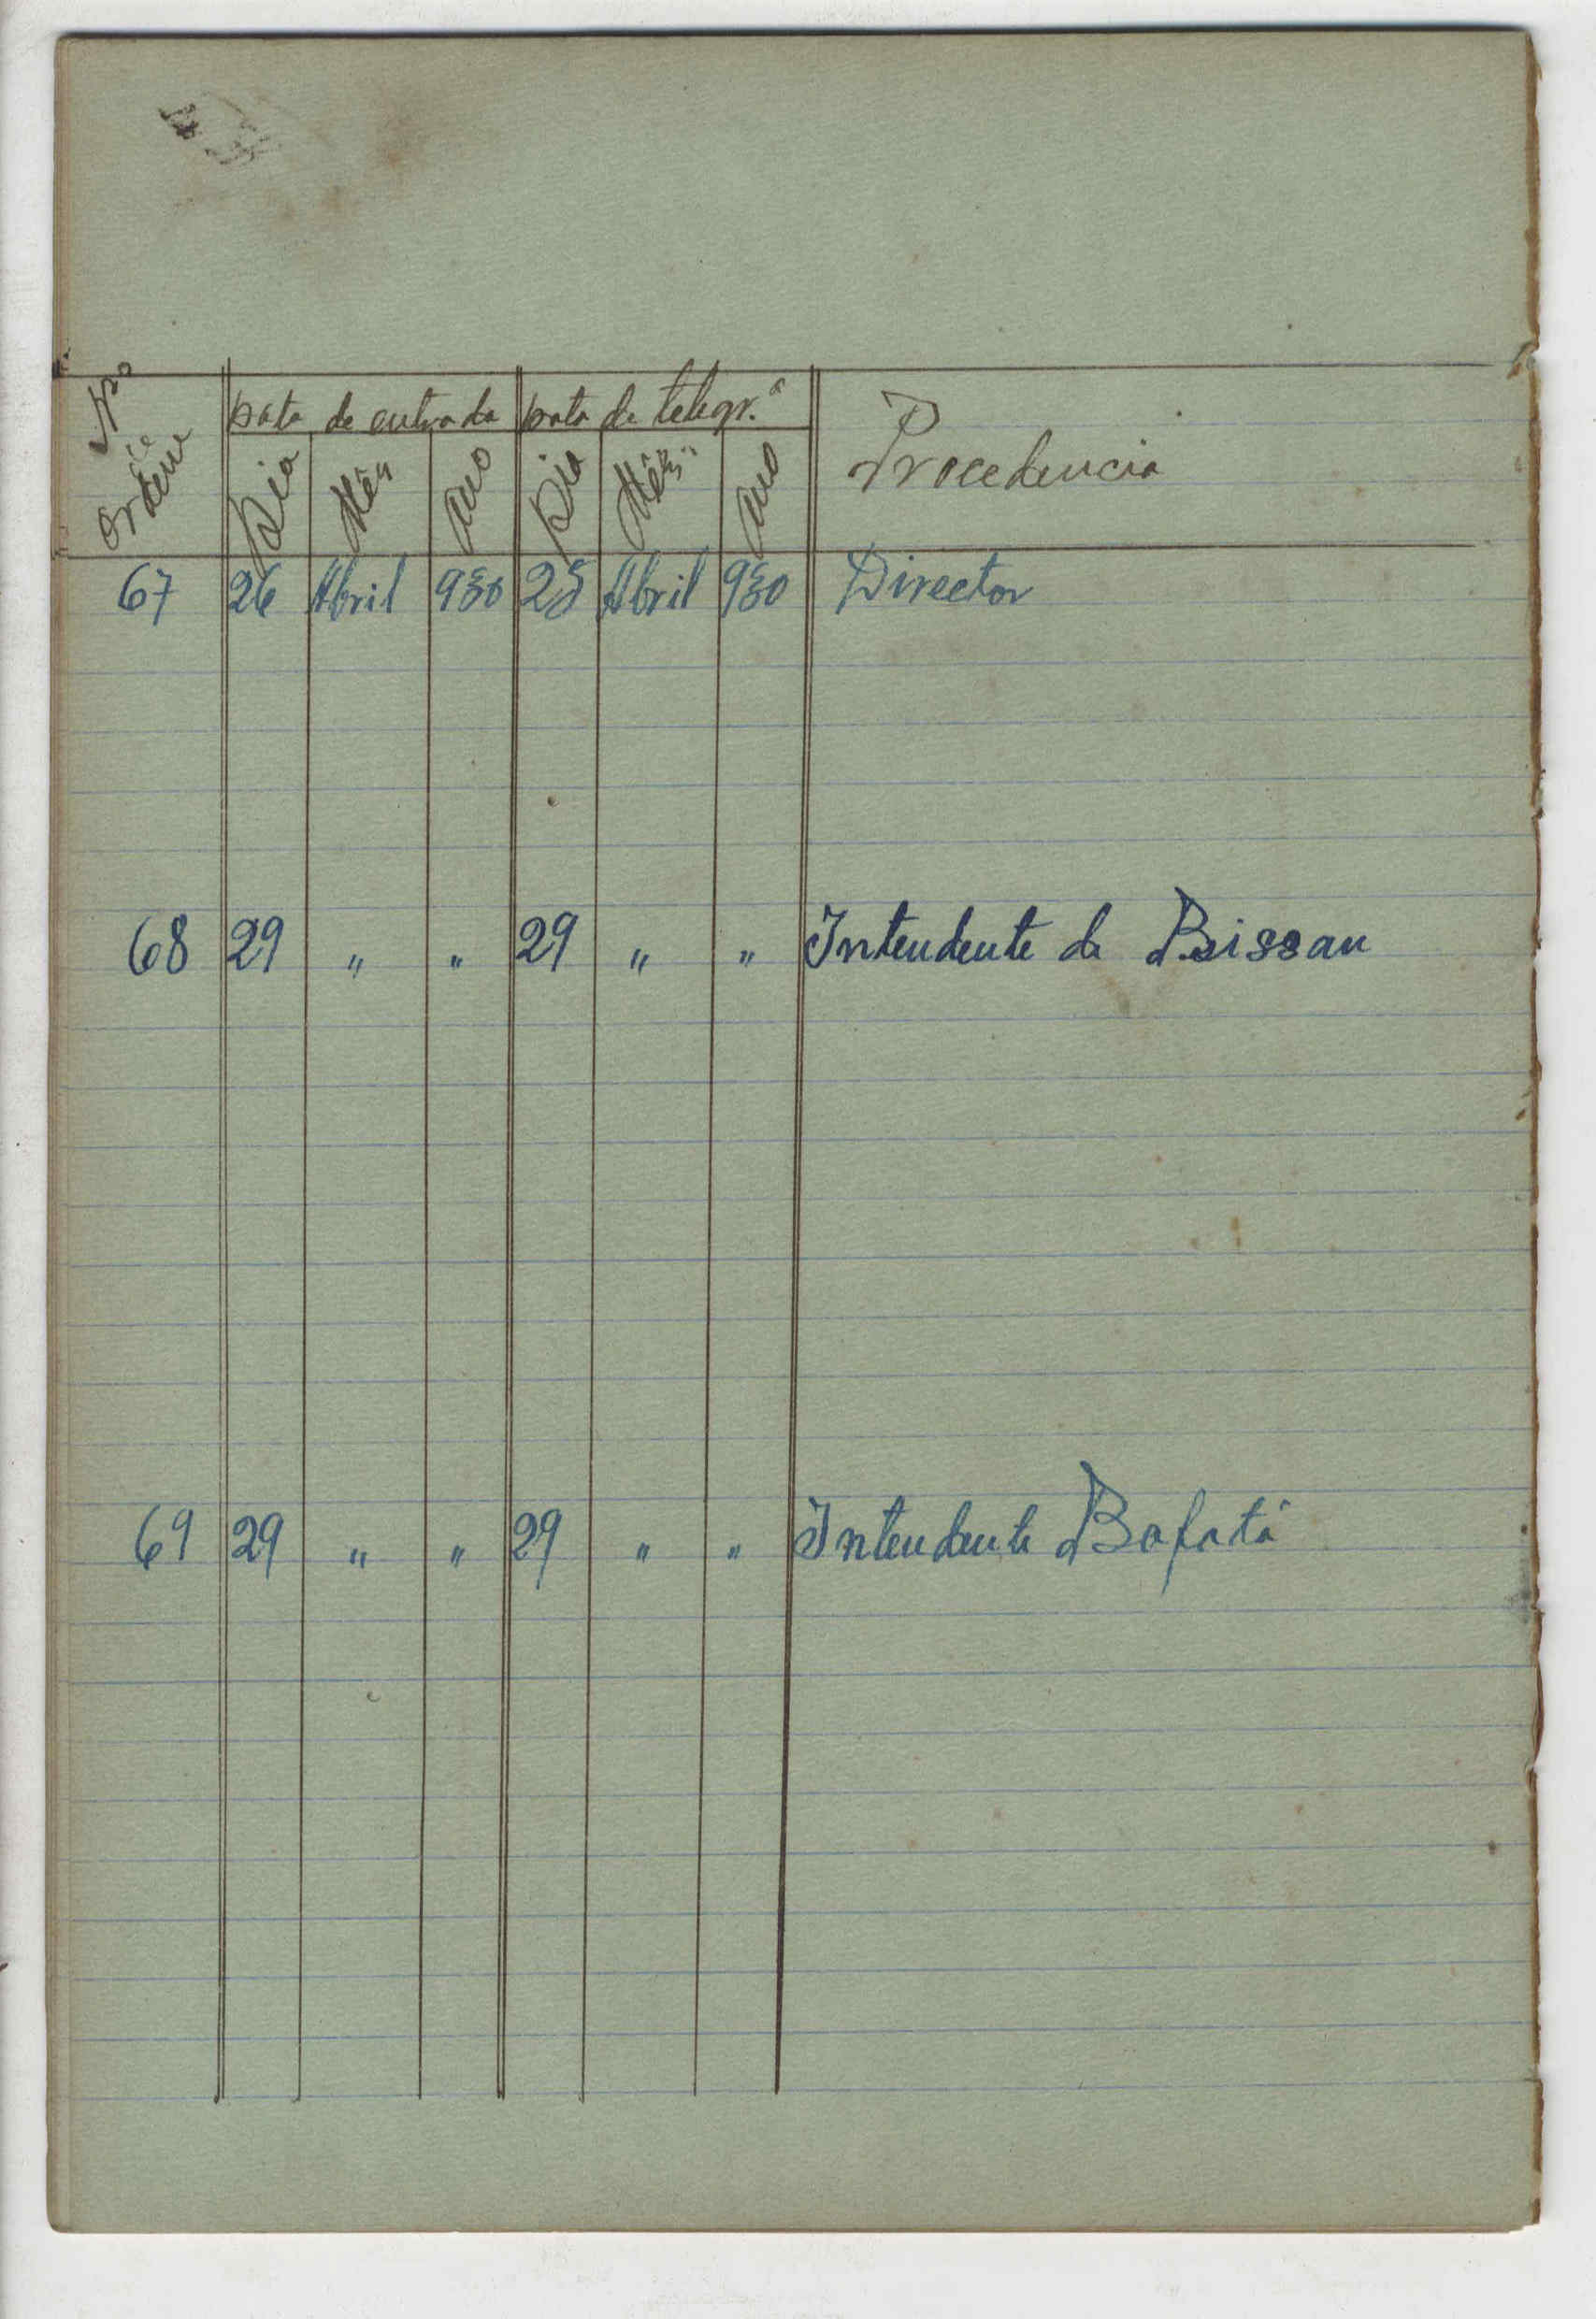 Nº de ordem Data de entrada Data de telegr.ª Procedencia
Dia Mês Ano Dia Mês Ano
67 26 Abril 930 25 Abril 930 Director
68 29 " " 29 " " Intendente de Bissau
69 29 " " 29 " " Intendente Bafatá